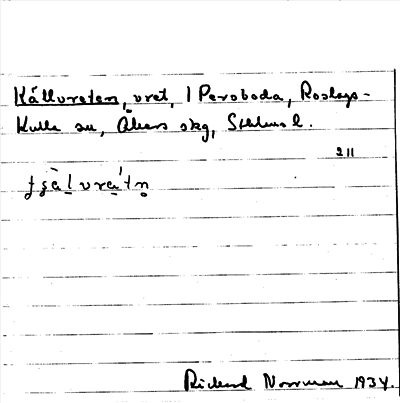 Källvreten, vret, 1 Persboda, Roslags-
Kulla sn, Åkers skg, Sthlms l.
211
Richard Norrman 1934.